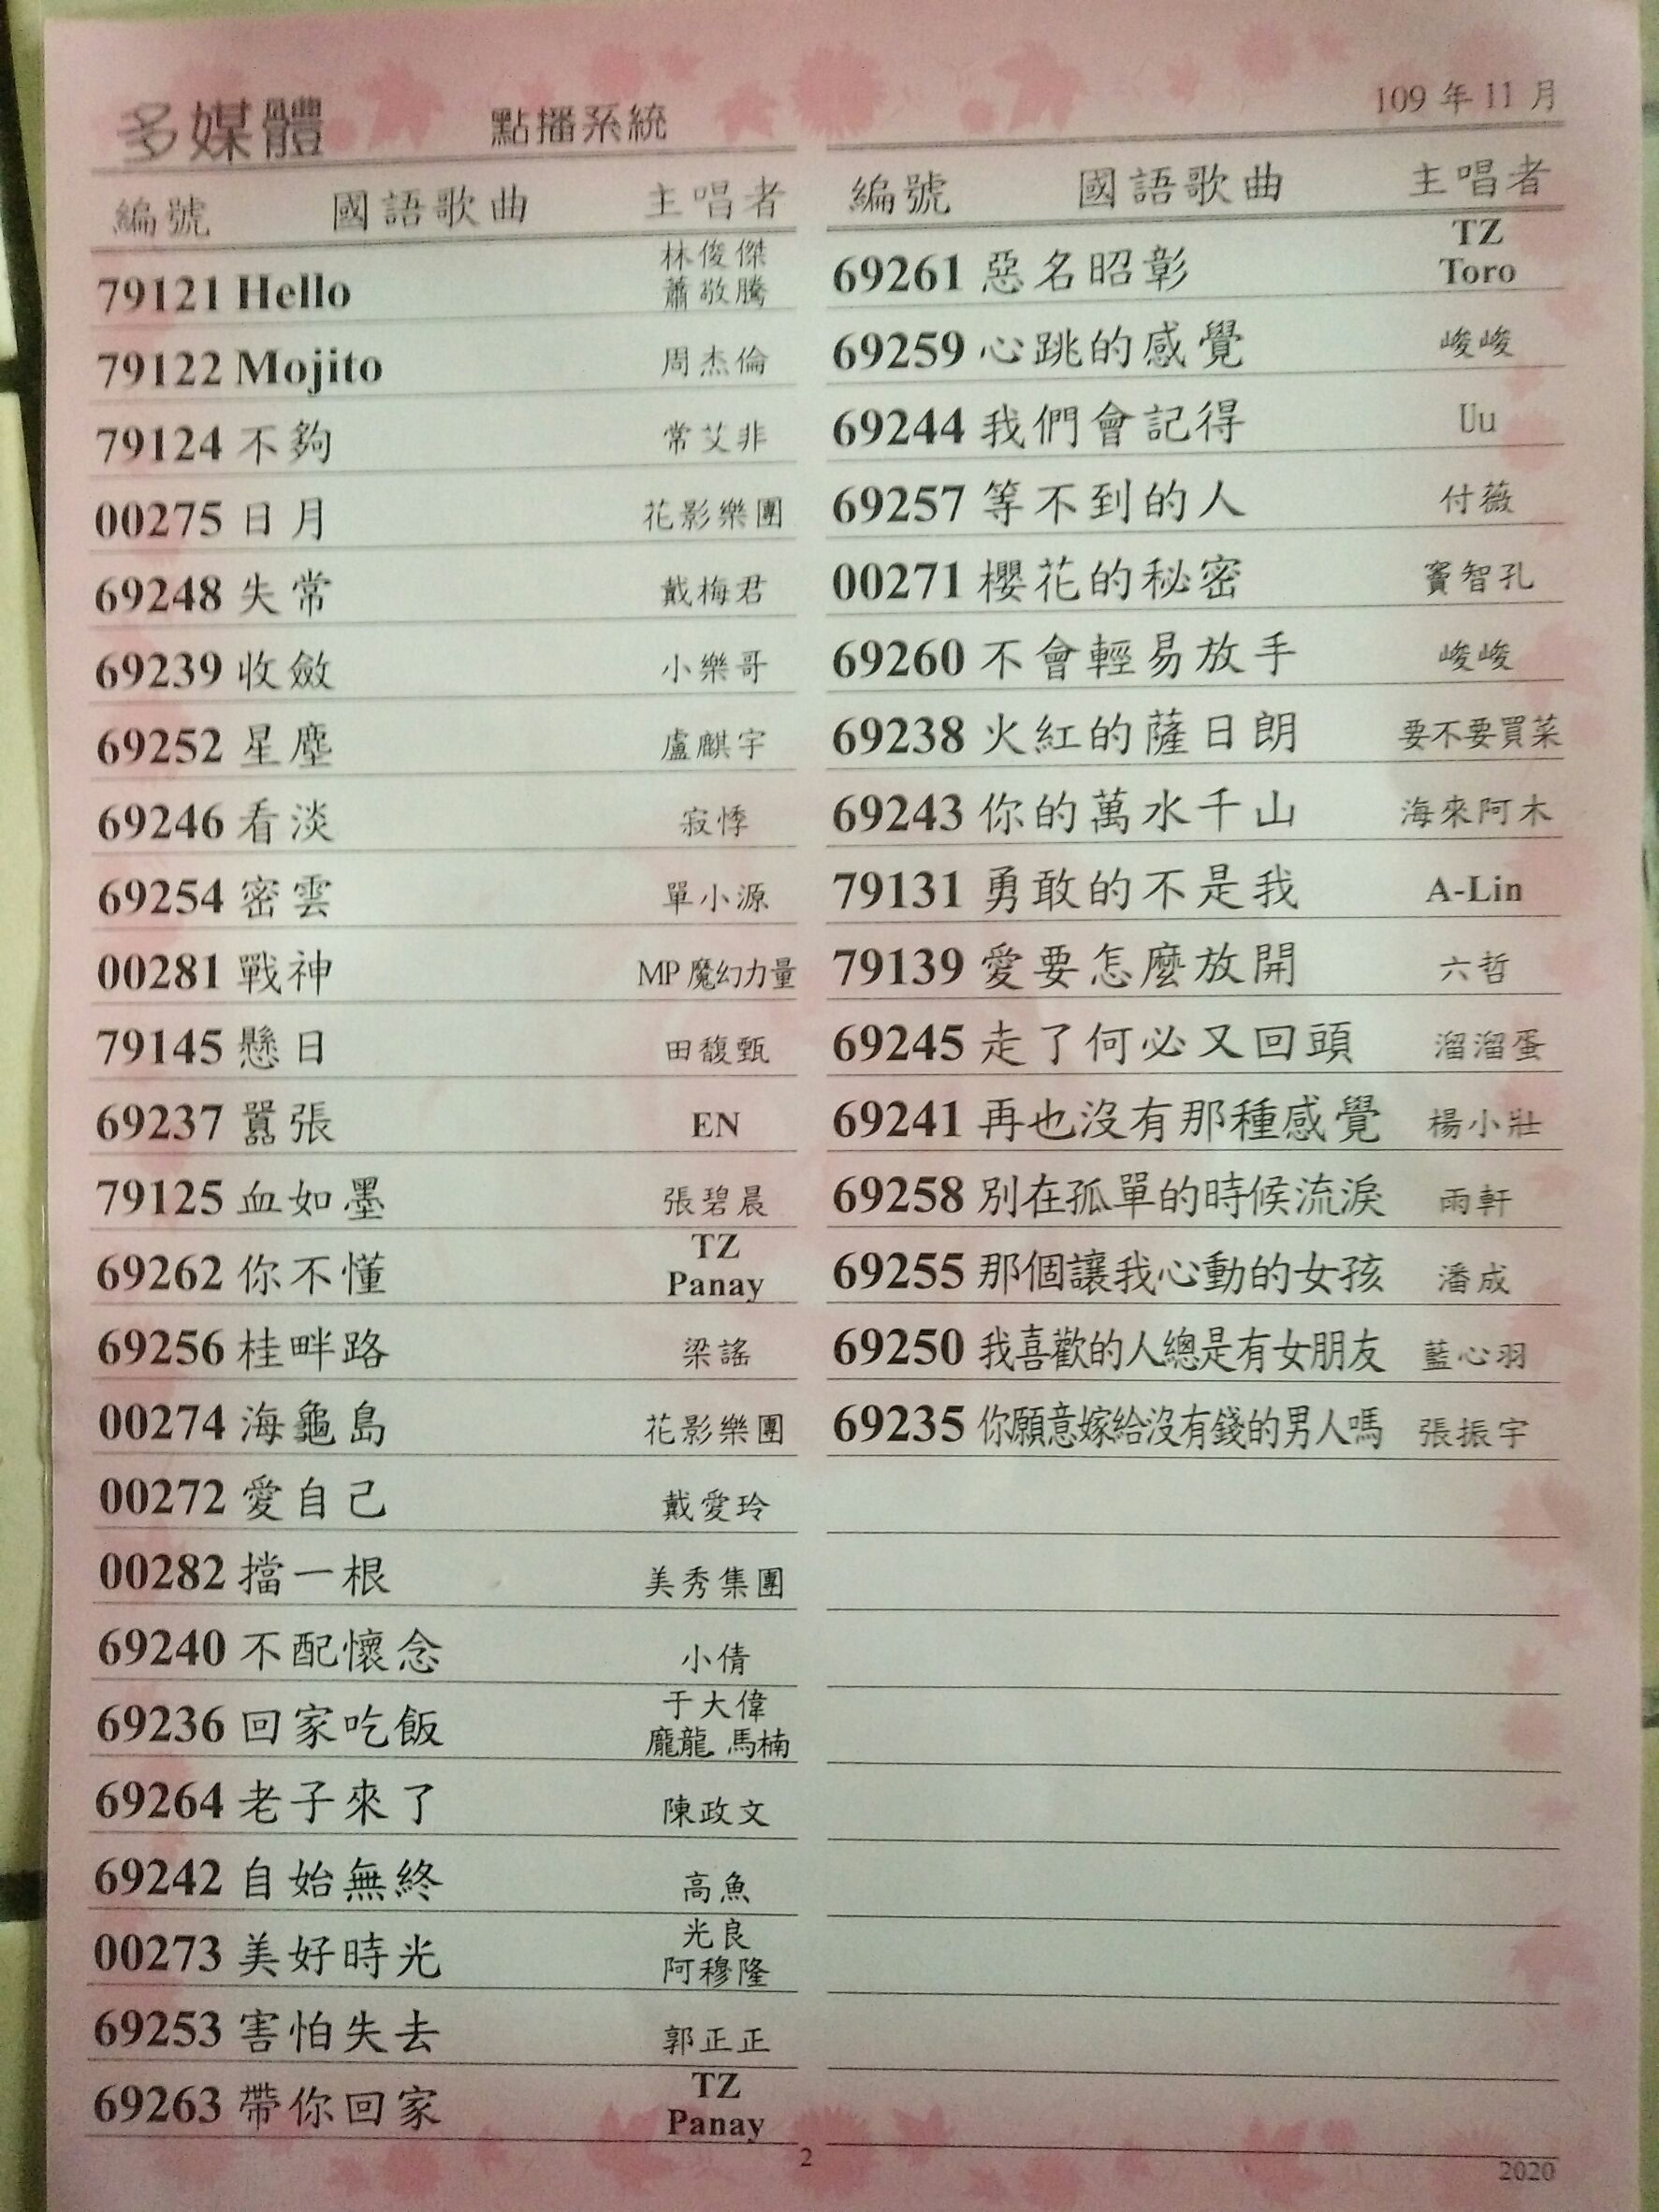 多媒體 點播系統 109 年 11 月
編號 國語歌曲 主唱者
79121 Hello 林俊傑 蕭敬騰
79122 Mojito 周杰倫
79124 不夠 常艾非
00275 日月 花影樂團
69248 失常 戴梅君
69239 收斂 小樂哥
69252 星塵 盧麒宇
69246 看淡 寂悸
69254 密雲 單小源
00281 戰神 MP 魔幻力量
79145 懸日 田馥甄
69237 囂張 EN
79125 血如墨 張碧晨
69262 你不懂 TZ Panay
69256 桂畔路 梁謠
00274 海龜島 花影樂團
00272 愛自己 戴愛玲
00282 擋一根 美秀集團
69240 不配懷念 小倩
69236 回家吃飯 于大偉 龐龍 馬楠
69264 老子來了 陳政文
69242 自始無終 高魚
00273 美好時光 光良 阿穆隆
69253 害怕失去 郭正正
69263 帶你回家 TZ Panay
編號 國語歌曲 主唱者
69261 惡名昭彰 TZ Toro
69259 心跳的感覺 峻峻
69244 我們會記得 Uu
69257 等不到的人 付薇
00271 櫻花的秘密 竇智孔
69260 不會輕易放手 峻峻
69238 火紅的薩日朗 要不要買菜
69243 你的萬水千山 海來阿木
79131 勇敢的不是我 A-Lin
79139 愛要怎麼放開 六哲
69245 走了何必又回頭 溜溜蛋
69241 再也沒有那種感覺 楊小壯
69258 別在孤單的時候流淚 雨軒
69255 那個讓我心動的女孩 潘成
69250 我喜歡的人總是有女朋友 藍心羽
69235 你願意嫁給沒有錢的男人嗎 張振宇
2
2020